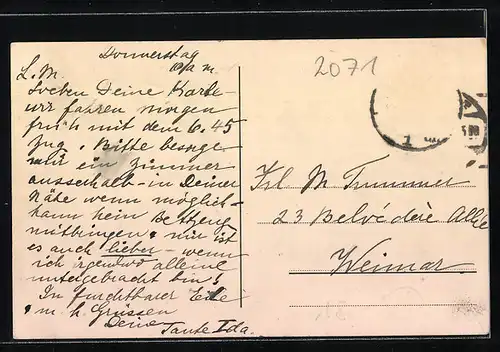 Donnerstag
L. M.
Soeben Deine Karte -
wir fahren morgen
früh mit dem 6.45
Zug. Bitte besorge
mir ein Zimmer
ausserhalb - in Deiner
Nähe wenn möglich -
kann kein Bettzeug
mitbringen, mir ist
es auch lieber - wenn
ich irgendwo alleine
untergebracht bin!
In furchtbarer Eile
m. h. Grüssen
Deine
Tante Ida.
2071
Frl. M.
23 Belvédère Allée
Weimar